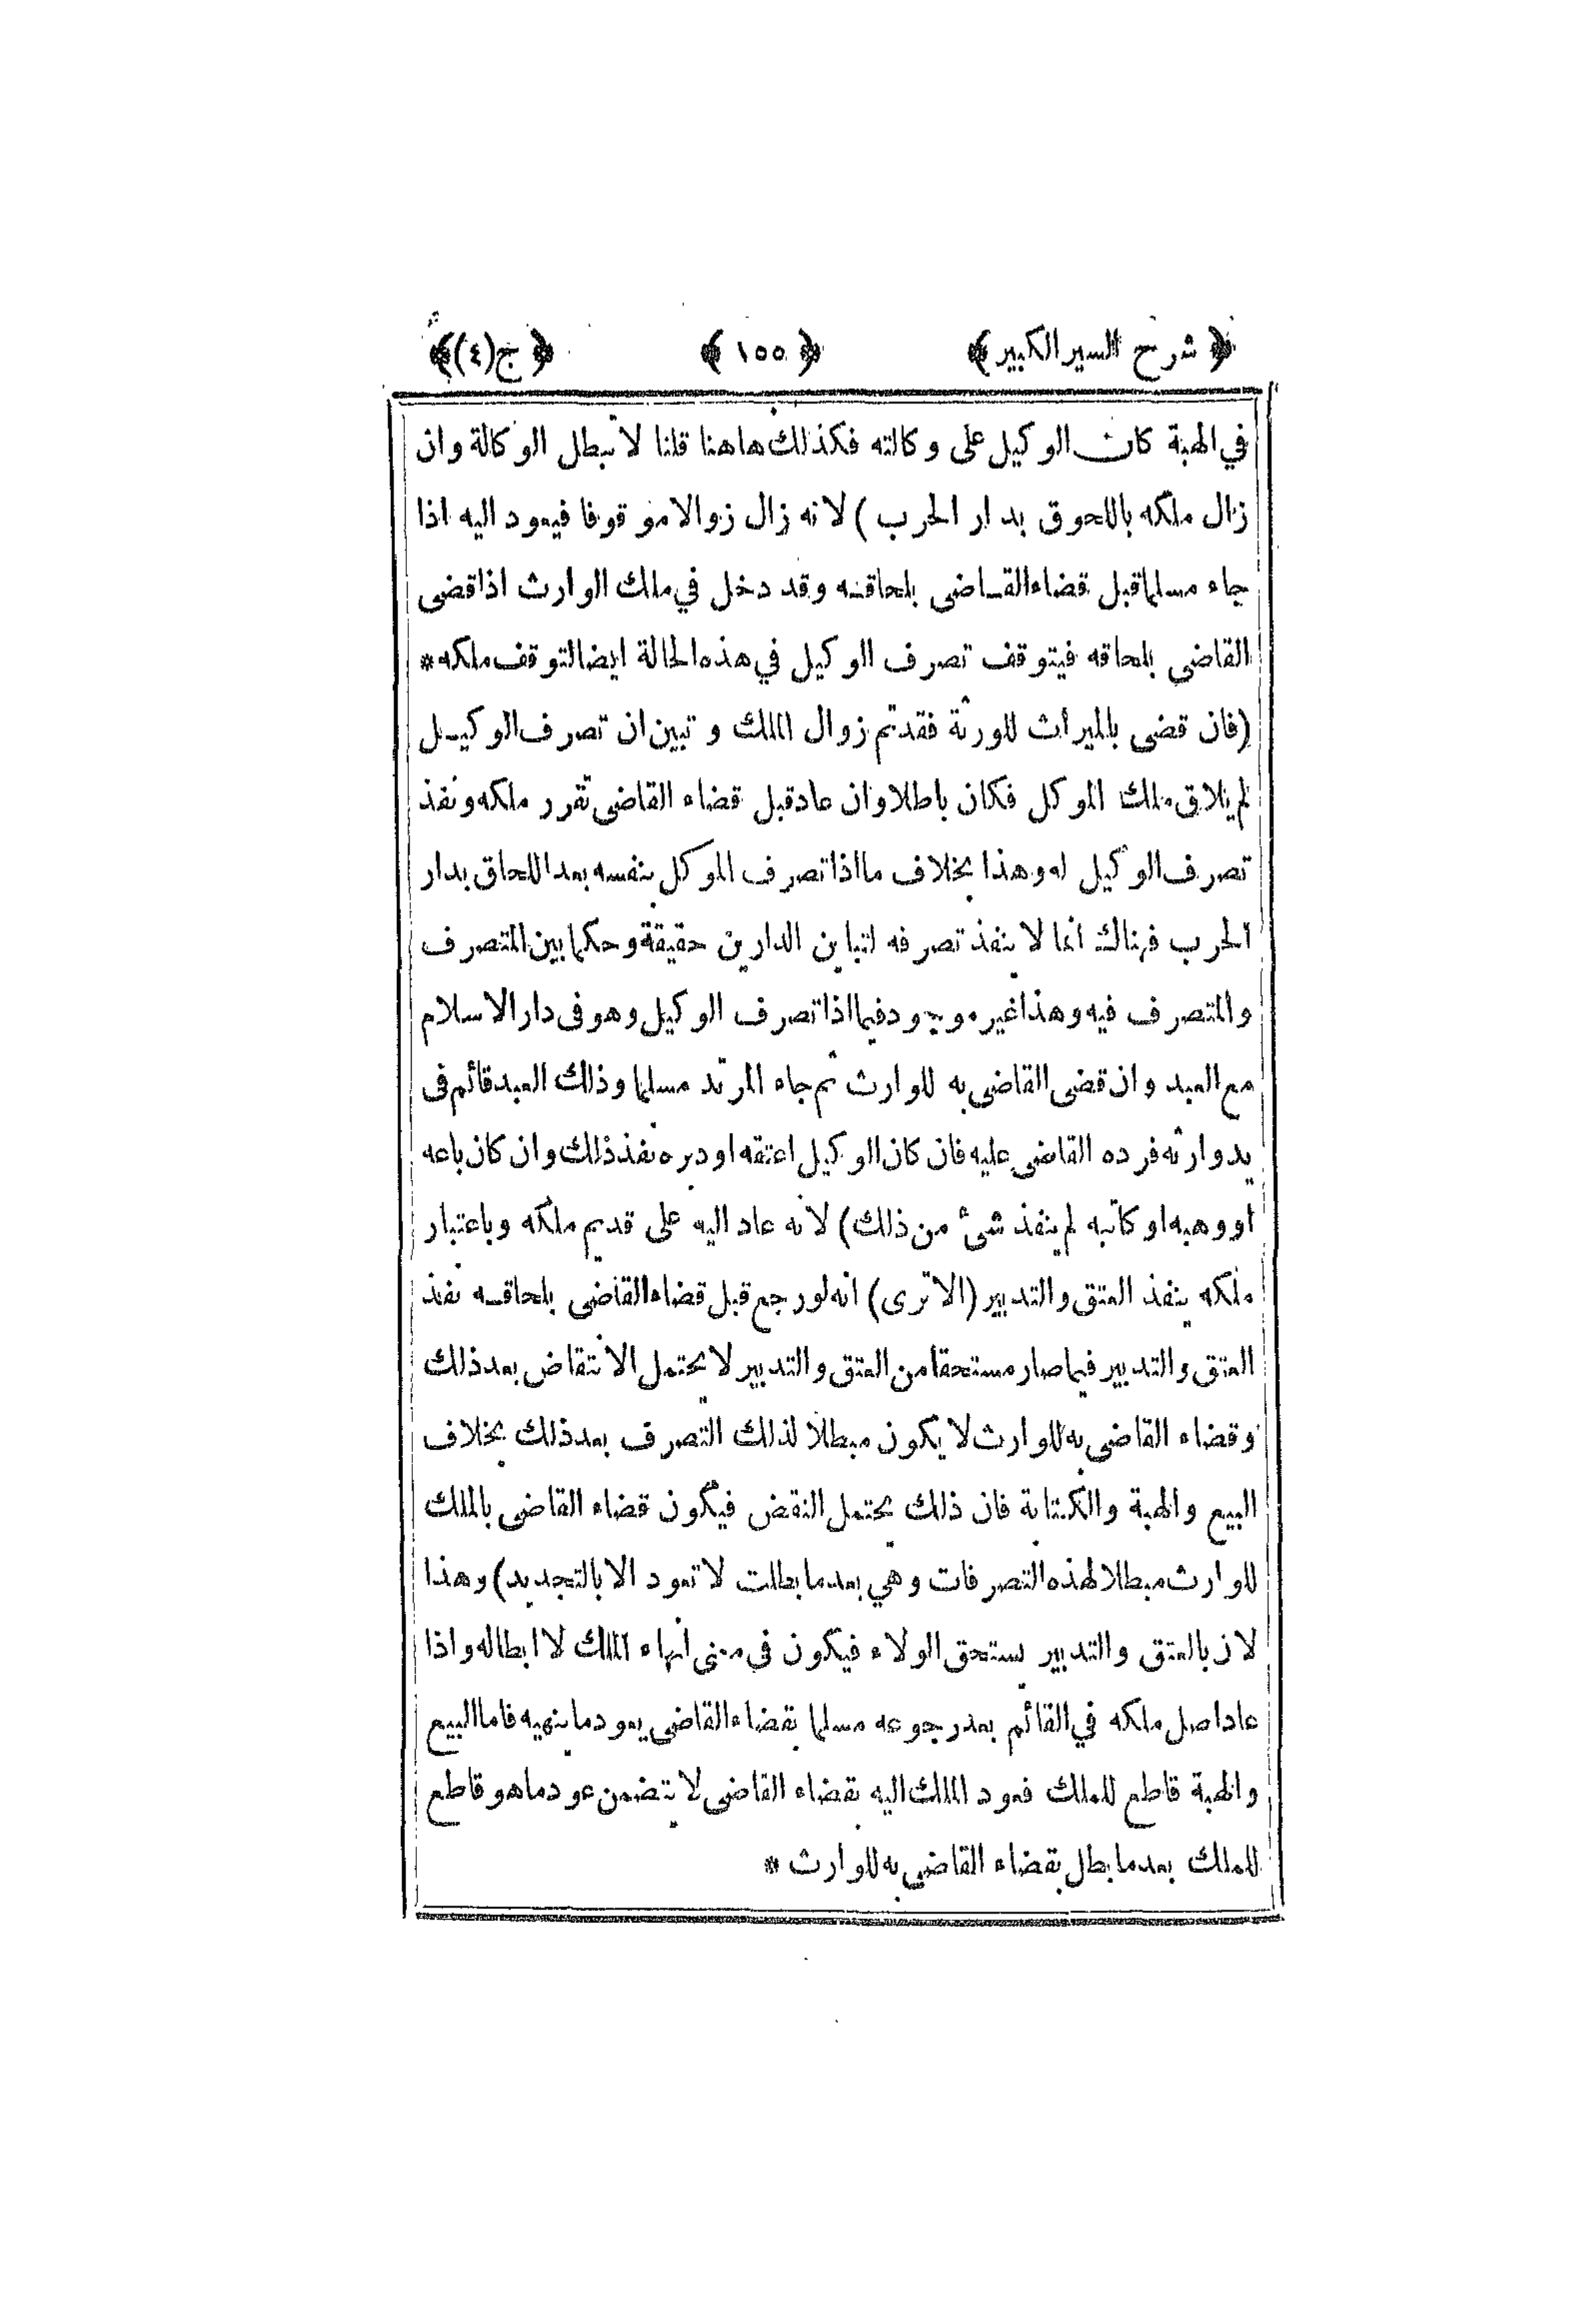 ﴿ شرح السير الكبير ﴾ ﴿ ١٥٥ ﴾ ﴿ ج(٤) ﴾
في الهبة كان الوكيل على وكالته فكذلك هاهنا قلنا لا تبطل الوكالة وان
زال ملكه باللحوق بدار الحرب ) لانه زال زوالا موقوفا فيعود اليه اذا
جاء مسلما قبل قضاء القاضى بلحاقه وقد دخل في ملك الوارث اذا قضى
القاضى بلحاقه فيتوقف تصرف الوكيل في هذه الحالة ايضا لتوقف ملكه *
(فان قضى بالميراث للورثة فقد تم زوال الملك وتبين ان تصرف الوكيل
لم يلاق ملك الموكل فكان باطلا وان عاد قبل قضاء القاضى تقرر ملكه ونفذ
تصرف الوكيل له وهذا بخلاف ما اذا تصرف الموكل بنفسه بعد اللحاق بدار
الحرب فهناك انما لا ينفذ تصرفه لتباين الدارين حقيقة وحكما بين المتصرف
والمتصرف فيه وهذا غير موجود فيما اذا تصرف الوكيل وهو فى دار الاسلام
مع العبد وان قضى القاضى به للوارث ثم جاء المرتد مسلما وذلك العبد قائم فى
يد وارثه فرده القاضى عليه فان كان الوكيل اعتقه او دبره نفذ ذلك وان كان باعه
او وهبه او كاتبه لم ينفذ شئ من ذلك) لانه عاد اليه على قديم ملكه وباعتبار
ملكه ينفذ العتق والتدبير (الا ترى) انه لو رجع قبل قضاء القاضى بلحاقه نفذ
العتق والتدبير فيما صار مستحقا من العتق والتدبير لا يحتمل الانتقاض بعد ذلك
وقضاء القاضى به للوارث لا يكون مبطلا لذلك التصرف بعد ذلك بخلاف
البيع والهبة والكتابة فان ذلك يحتمل النقض فيكون قضاء القاضى بالملك
للوارث مبطلا لهذه التصرفات وهي بعد ما بطلت لا تعود الا بالتجديد) وهذا
لان بالعتق والتدبير يستحق الولاء فيكون فى معنى انهاء الملك لا ابطاله واذا
عاد اصل ملكه في القائم بعد رجوعه مسلما بقضاء القاضى يعود ما ينهيه فاما البيع
والهبة قاطع للملك فعود الملك اليه بقضاء القاضى لا يتضمن عود ما هو قاطع
للملك بعد ما بطل بقضاء القاضى به للوارث *